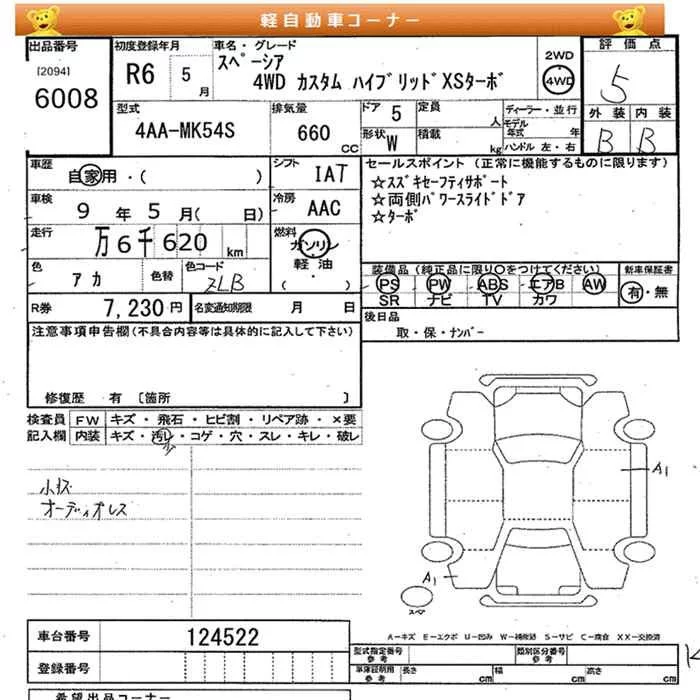 軽自動車コーナー
出品番号
[2094]
6008
初度登録年月
R6 5月
車名・グレード
スペーシア
4WD カスタム ハイブリッドXSターボ
2WD
4WD
評価点
5
外装 内装
B B
型式
4AA-MK54S
排気量
660 CC
ドア 5
形状 W
定員 人
積載 kg
ディーラー・並行
モデル年式 年
ハンドル 左・右
車歴
自家用・( )
車検
9年5月( 日)
走行
万6千620 km
色
アカ
色替
色コード
ZLB
シフト
IAT
冷房
AAC
燃料
ガソリン
軽油
( ・ )
セールスポイント(正常に機能するものに限ります)
☆スズキセーフティサポート
☆両側パワースライドドア
☆ターボ
装備品(純正品に限り○をつけてください)
PS PW ABS エアB AW
SR ナビ TV カワ
新車保証書
有・無
R券
7,230円
名変通知期限 月 日
後日品
取・保・ナンバー
注意事項申告欄(不具合内容等は具体的に記入して下さい)
修復歴 有 [箇所 ]
検査員記入欄
FW キズ・飛石・ヒビ割・リペア跡・×要
内装 キズ・汚レ・コゲ・穴・スレ・キレ・破レ
オーディオレス
A1
A1
スペア
A-キズ E-エクボ U-凹み W-補修跡 S-サビ C-腐食 XX-交換済
車台番号
124522
登録番号
型式指定番号
参考
類別区分番号
参考
車庫証明用
参考
長さ cm
幅 cm
高さ cm
希望出品コーナー